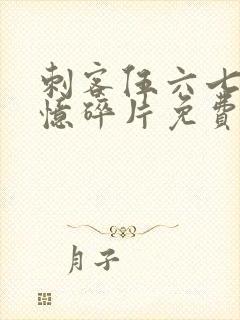 刺客伍六七
憶碎片免費
月子